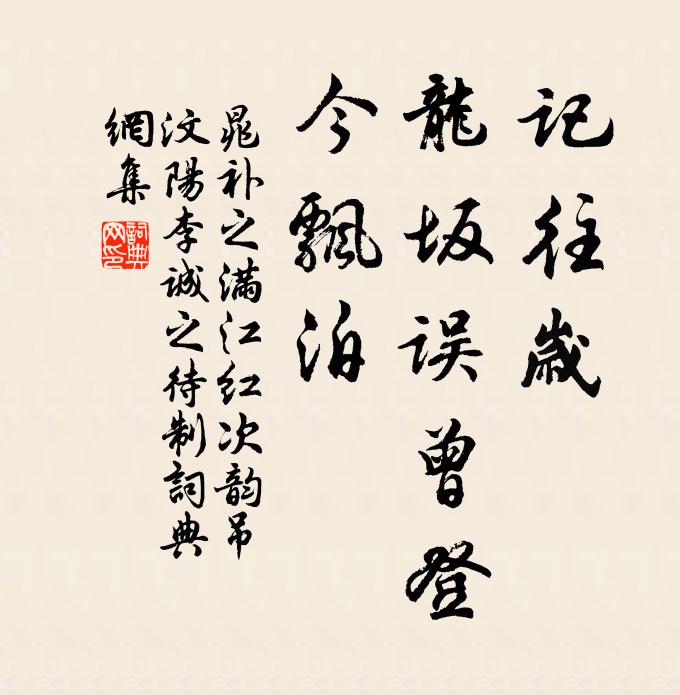 记往岁
龍坂误曾登
今飄泊
晁补之满江红次韵吊
汶陽李诚之待制詞典
網集
詞典
网印